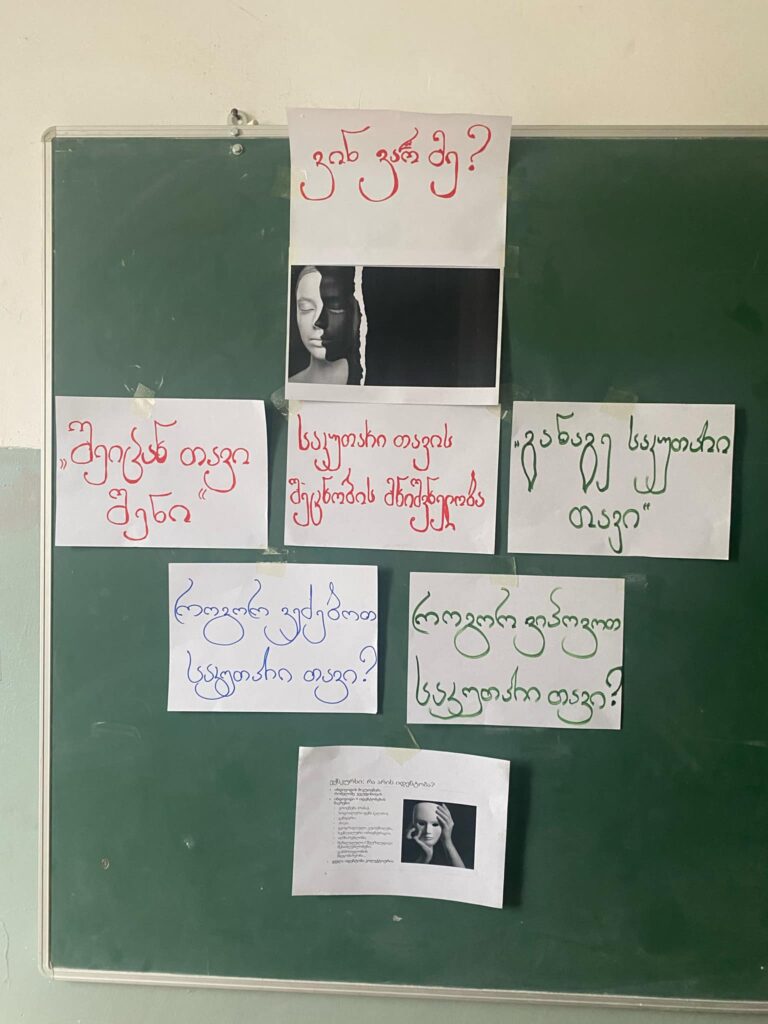 ვინ ვარ მე?
„შეიცან თავი
შენი“
საკუთარი თავის
შეცნობის მნიშვნელობა
„განაგე საკუთარი
თავი“
როგორ ვეძებოთ
საკუთარი თავი?
როგორ ვიპოვოთ
საკუთარი თავი?
ექსკურსი: რა არის იდენტობა?